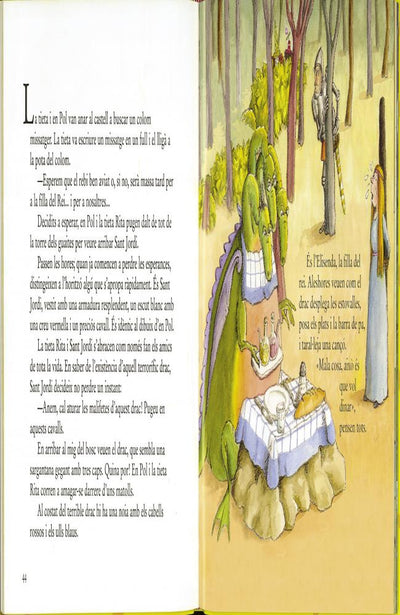 La tieta i en Pol van anar al castell a buscar un colom
missatger. La tieta va escriure un missatge en un full i el lligà a
la pota del colom.
—Esperem que el rebi ben aviat o, si no, serà massa tard per
a la filla del Rei... i per a nosaltres...
Decidits a esperar, en Pol i la tieta Rita pugen dalt de tot de
la torre dels guaites per veure arribar Sant Jordi.
Passen les hores; quan ja comencen a perdre les esperances,
distingeixen a l'horitzó algú que s'apropa ràpidament. És Sant
Jordi, vestit amb una armadura resplendent, un escut blanc amb
una creu vermella i un preciós cavall. És idèntic al dibuix d'en Pol.
La tieta Rita i Sant Jordi s'abracen com només fan els amics
de tota la vida. En saber de l'existència d'aquell terrorífic drac,
Sant Jordi decideix no perdre un instant:
—Anem, cal aturar les malifetes d'aquest drac! Pugeu en
aquests cavalls.
En arribar al mig del bosc veuen el drac, que sembla una
sargantana gegant amb tres caps. Quina por! En Pol i la tieta
Rita corren a amagar-se darrere d'uns matolls.
Al costat del terrible drac hi ha una noia amb els cabells
rossos i els ulls blaus.
44
És l'Elisenda, la filla del
rei. Aleshores veuen com el
drac desplega les estovalles,
posa els plats i la barra de pa,
i taral·leja una cançó.
«Mala cosa, això és
que vol
dinar»,
pensen tots.